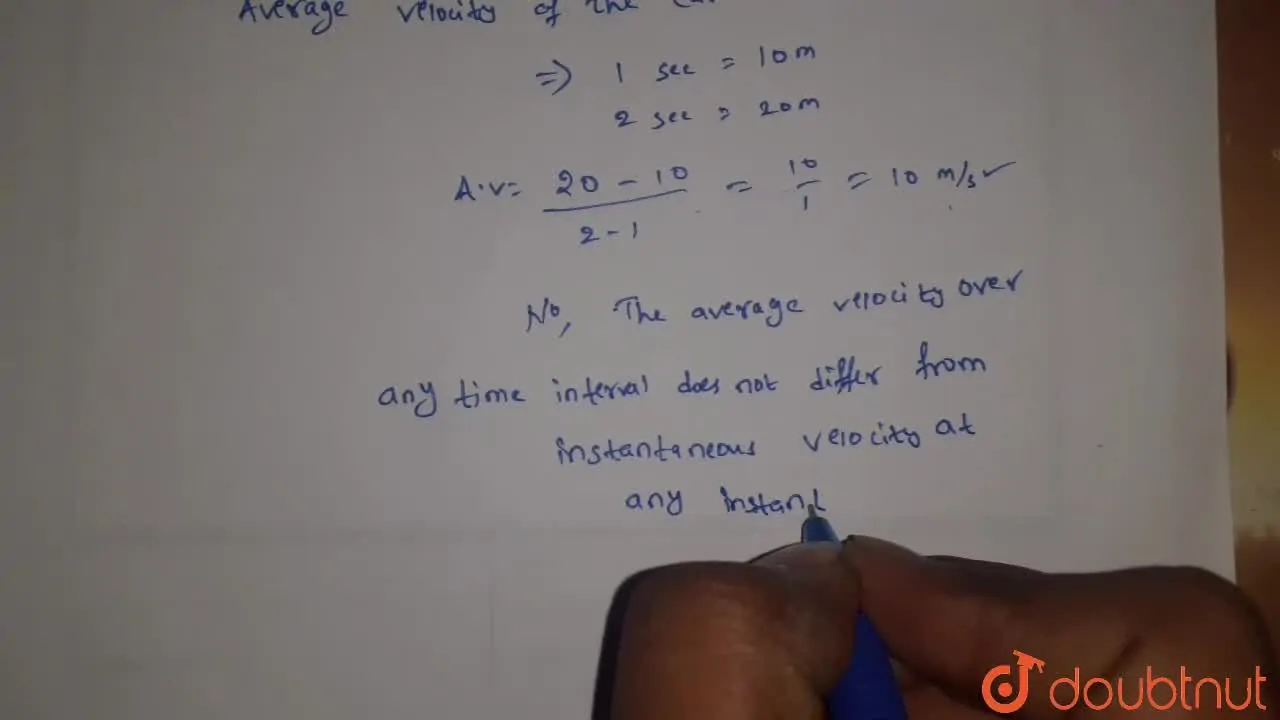 Average velocity of the
⇒ 1 sec = 10m
2 sec = 20m
A.V= 20 - 10 / 2 - 1 = 10 / 1 = 10 m/s ✓
No, The average velocity over
any time interval does not differ from
instantaneous velocity at
any instant
doubtnut